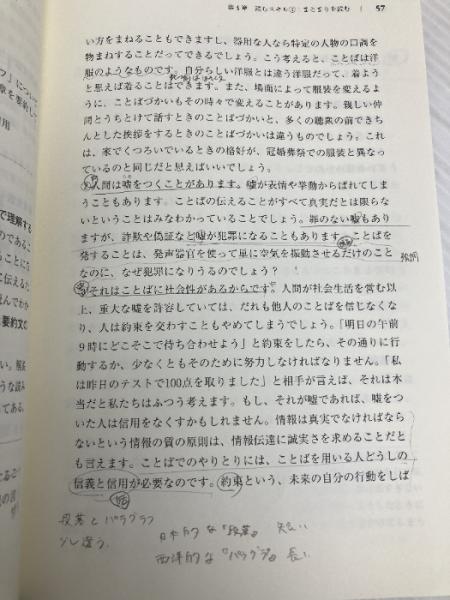 第5章 読むスキル③：まとまりを読む 57
い方をまねることもできますし、器用な人なら特定の人物の口調を
物まねすることだってできるでしょう。こう考えると、ことばは洋
服のようなものです。自分らしい洋服とは違う洋服だって、着よう
と思えば着ることはできます。また、場面によって服装を変えるよ
うに、ことばづかいもその時々で変えることがあります。親しい仲
間とうちとけて話すときのことばづかいと、多くの聴衆の前できち
んとした挨拶をするときのことばづかいは違うものでしょう。これ
は、家でくつろいでいるときの格好が、冠婚葬祭での服装と異なっ
ているのと同じだと思えばいいでしょう。
人間は嘘をつくことがあります。嘘が表情や挙動からばれてしま
うこともあります。ことばの伝えることがすべて真実だとは限らな
いということはみなわかっていることでしょう。罪のない嘘もあり
ますが、詐欺や偽証など嘘が犯罪になることもあります。ことばを
発することは、発声器官を使って単に空気を振動させるだけのこと
なのに、なぜ犯罪になりうるのでしょう？
それはことばに社会性があるからです。人間が社会生活を営む以
上、重大な嘘を許容していては、だれも他人のことばを信じなくな
り、人は約束を交わすこともやめてしまうでしょう。「明日の午前
9時にどこそこで待ち合わせよう」と約束をしたら、その通りに行
動するか、少なくともそのために努力しなければなりません。「私
は昨日のテストで100点を取りました」と相手が言えば、それは本
当だと私たちはふつう考えます。もし、それが嘘であれば、嘘をつ
いた人は信用をなくすかもしれません。情報は真実でなければなら
ないという情報の質の原則は、情報伝達に誠実さを求めることだと
も言えます。ことばでのやりとりには、ことばを用いる人どうしの
信義と信用が必要なのです。約束という、未来の自分の行動をしば
段落とパラグラフ
少し違う。
日本的な『段落』 短い
西洋的な『パラグラフ』長い